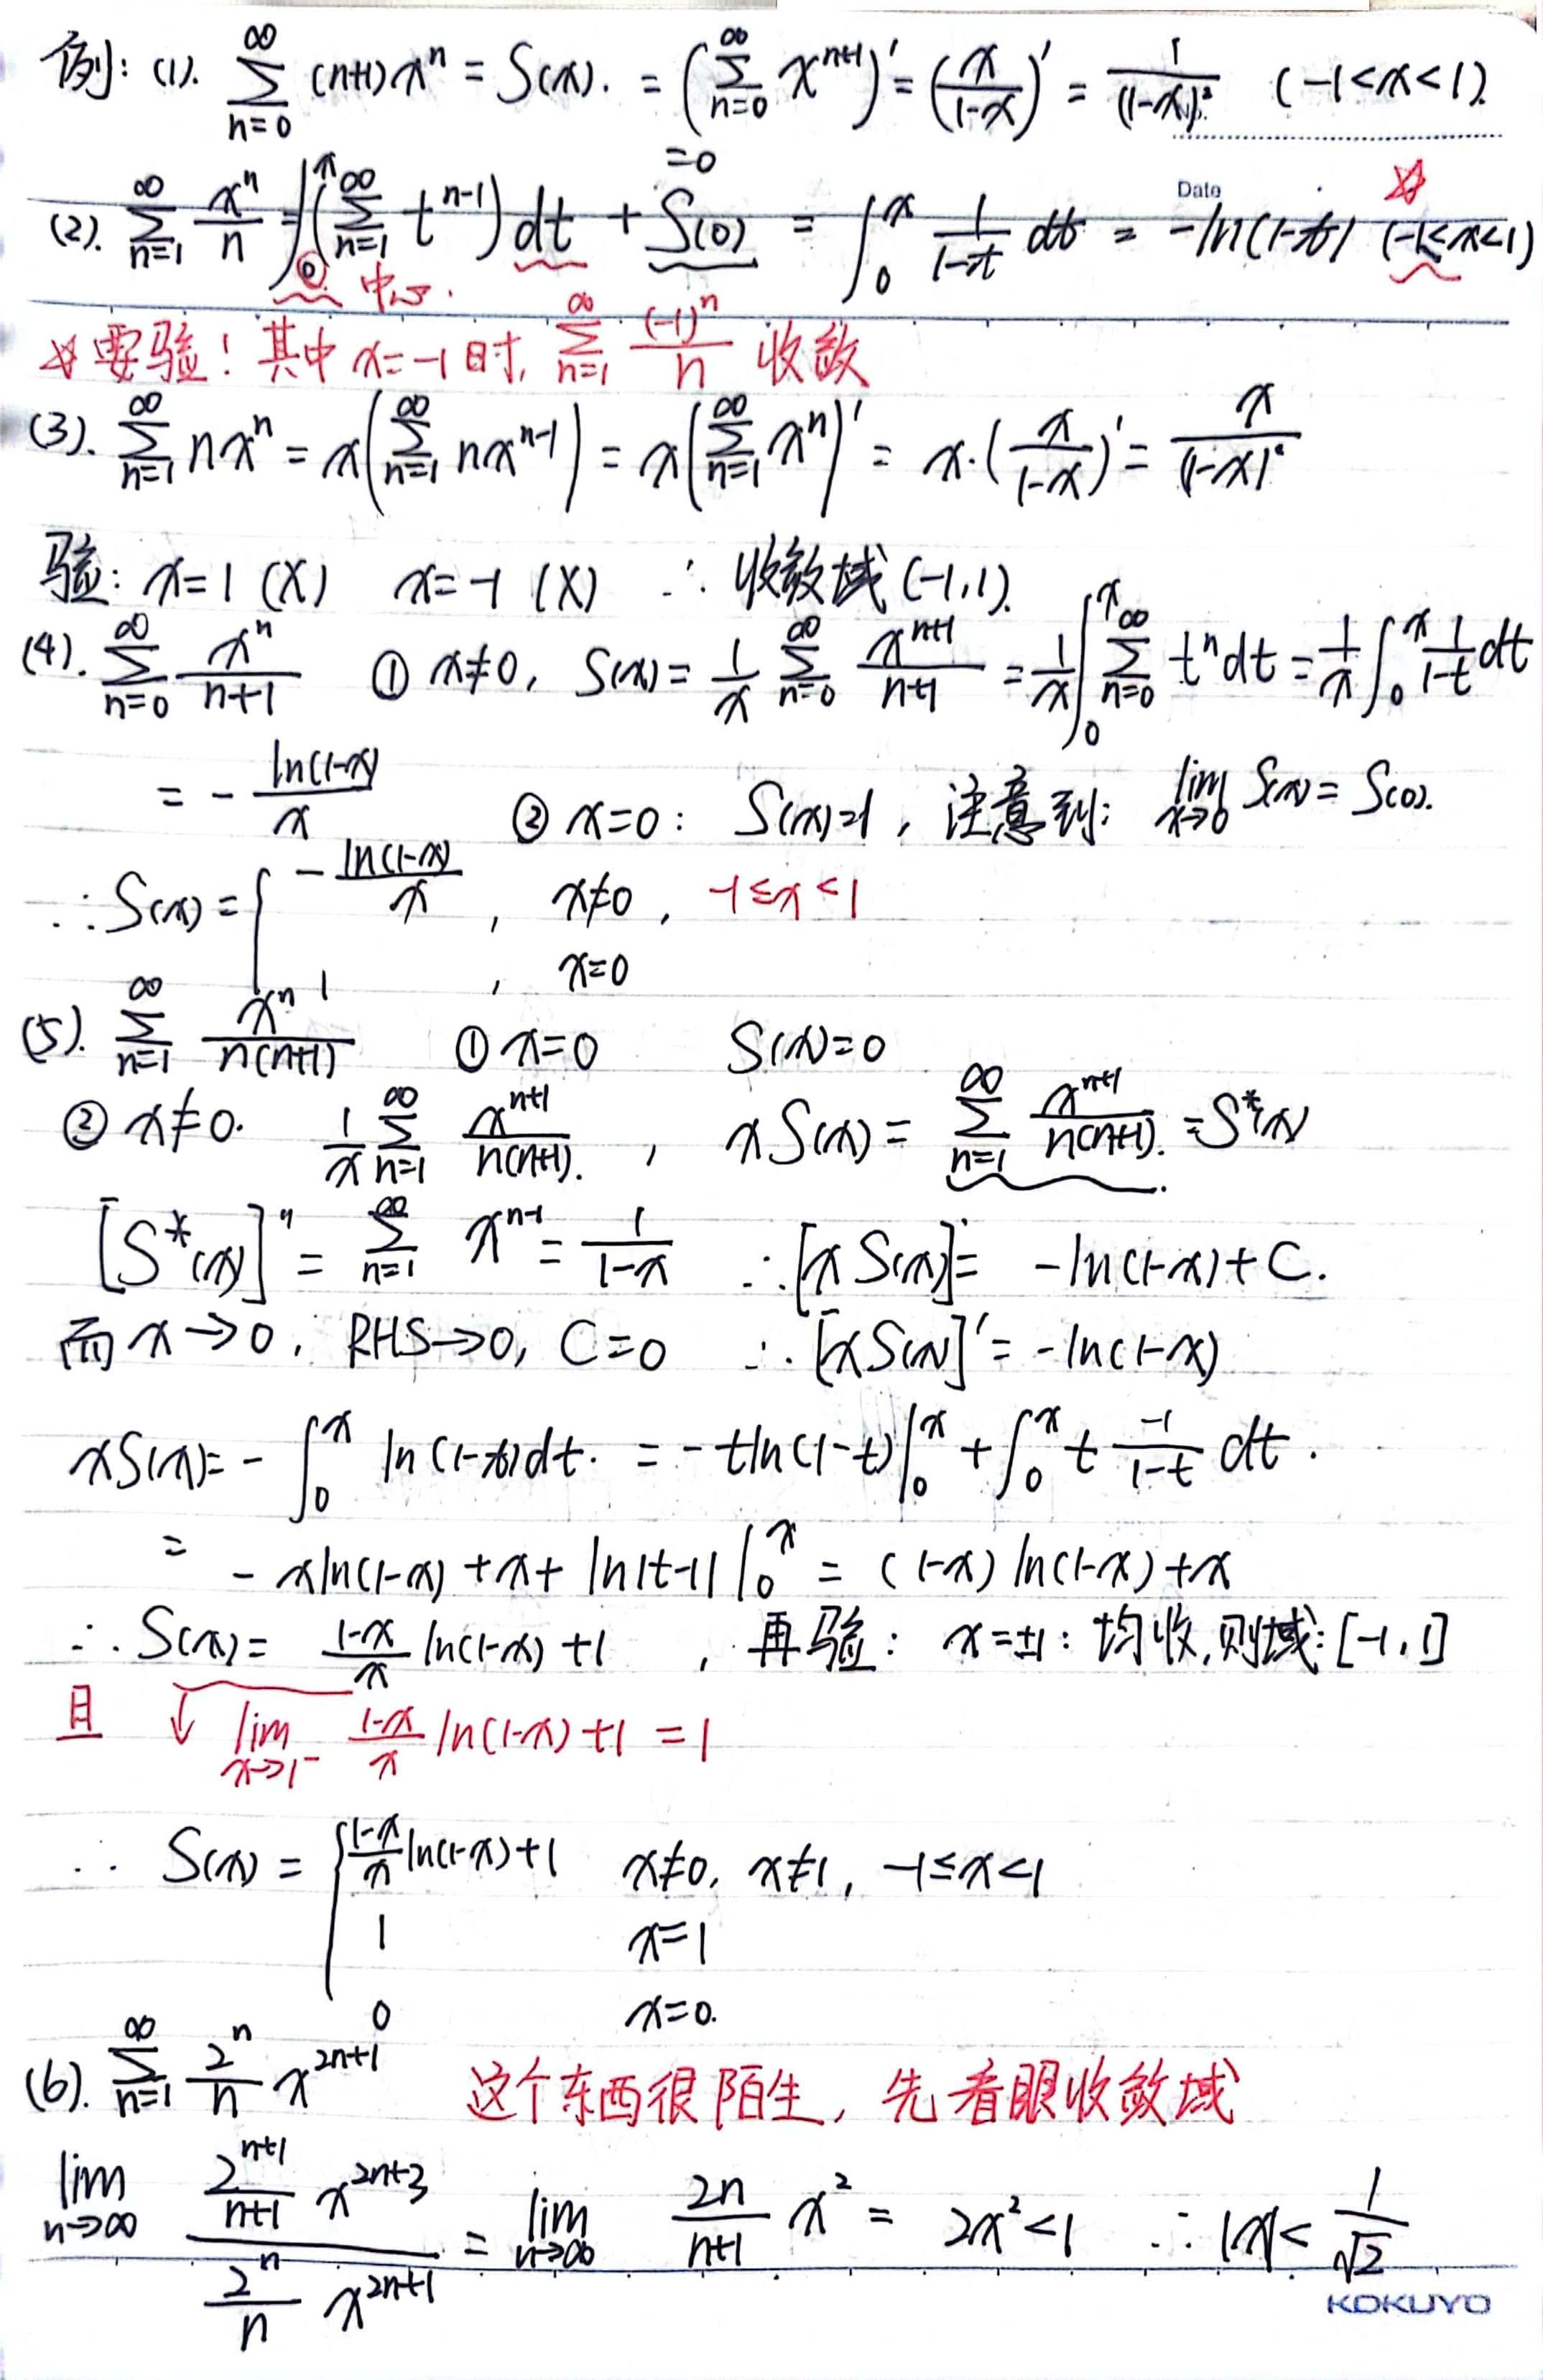 例: (1). $\sum_{n=0}^{\infty} (n+1)x^n = S(x). = \left(\sum_{n=0}^{\infty} x^{n+1}\right)' = \left(\frac{x}{1-x}\right)' = \frac{1}{(1-x)^2}$ (-1<x<1).
Date
(2). $\sum_{n=1}^{\infty} \frac{x^n}{n} = \int_0^x \left(\sum_{n=1}^{\infty} t^{n-1}\right) dt + S(0) = \int_0^x \frac{1}{1-t} dt = -\ln(1-x)$ (-1≤x<1) ☆
=0
中心.
☆要验! 其中 x=-1时, $\sum_{n=1}^{\infty} \frac{(-1)^n}{n}$ 收敛
(3). $\sum_{n=1}^{\infty} nx^n = x\left(\sum_{n=1}^{\infty} nx^{n-1}\right) = x\left(\sum_{n=1}^{\infty} x^n\right)' = x\cdot\left(\frac{x}{1-x}\right)' = \frac{x}{(1-x)^2}$
验: x=1 (X) x=-1 (X) ∴ 收敛域 (-1,1).
(4). $\sum_{n=0}^{\infty} \frac{x^n}{n+1}$ ① x≠0, $S(x) = \frac{1}{x} \sum_{n=0}^{\infty} \frac{x^{n+1}}{n+1} = \frac{1}{x} \int_0^x \sum_{n=0}^{\infty} t^n dt = \frac{1}{x} \int_0^x \frac{1}{1-t} dt$
$= -\frac{\ln(1-x)}{x}$ ② x=0: S(x)=1, 注意到: $\lim_{x\to 0} S(x) = S(0)$.
∴ $S(x) = \begin{cases} -\frac{\ln(1-x)}{x}, & x≠0, -1≤x<1 \\ 1, & x=0 \end{cases}$
(5). $\sum_{n=1}^{\infty} \frac{x^n}{n(n+1)}$ ① x=0 S(x)=0
② x≠0. $\frac{1}{x} \sum_{n=1}^{\infty} \frac{x^{n+1}}{n(n+1)}$, $xS(x) = \sum_{n=1}^{\infty} \frac{x^{n+1}}{n(n+1)} = S^*(x)$
$[S^*(x)]'' = \sum_{n=1}^{\infty} x^{n-1} = \frac{1}{1-x}$ ∴ $[xS(x)]' = -\ln(1-x)+C$.
而 x→0, RHS→0, C=0 ∴ $[xS(x)]' = -\ln(1-x)$
$xS(x) = -\int_0^x \ln(1-t)dt. = -t\ln(1-t)|_0^x + \int_0^x t \frac{-1}{1-t} dt$.
$= -x\ln(1-x) + x + \ln|t-1| |_0^x = (1-x)\ln(1-x)+x$
∴ $S(x) = \frac{1-x}{x} \ln(1-x)+1$, 再验: x=±1: 均收, 则域: [-1,1]
且 ↓ $\lim_{x\to 1^-} \frac{1-x}{x} \ln(1-x)+1 = 1$
∴ $S(x) = \begin{cases} \frac{1-x}{x}\ln(1-x)+1 & x≠0, x≠1, -1≤x<1 \\ 1 & x=1 \\ 0 & x=0. \end{cases}$
(6). $\sum_{n=1}^{\infty} \frac{2^n}{n} x^{2n+1}$ 这个东西很陌生, 先看眼收敛域
$\lim_{n\to\infty} \frac{\frac{2^{n+1}}{n+1} x^{2n+3}}{\frac{2^n}{n} x^{2n+1}} = \lim_{n\to\infty} \frac{2n}{n+1} x^2 = 2x^2<1$ ∴ $|x|<\frac{1}{\sqrt{2}}$
KOKUYO